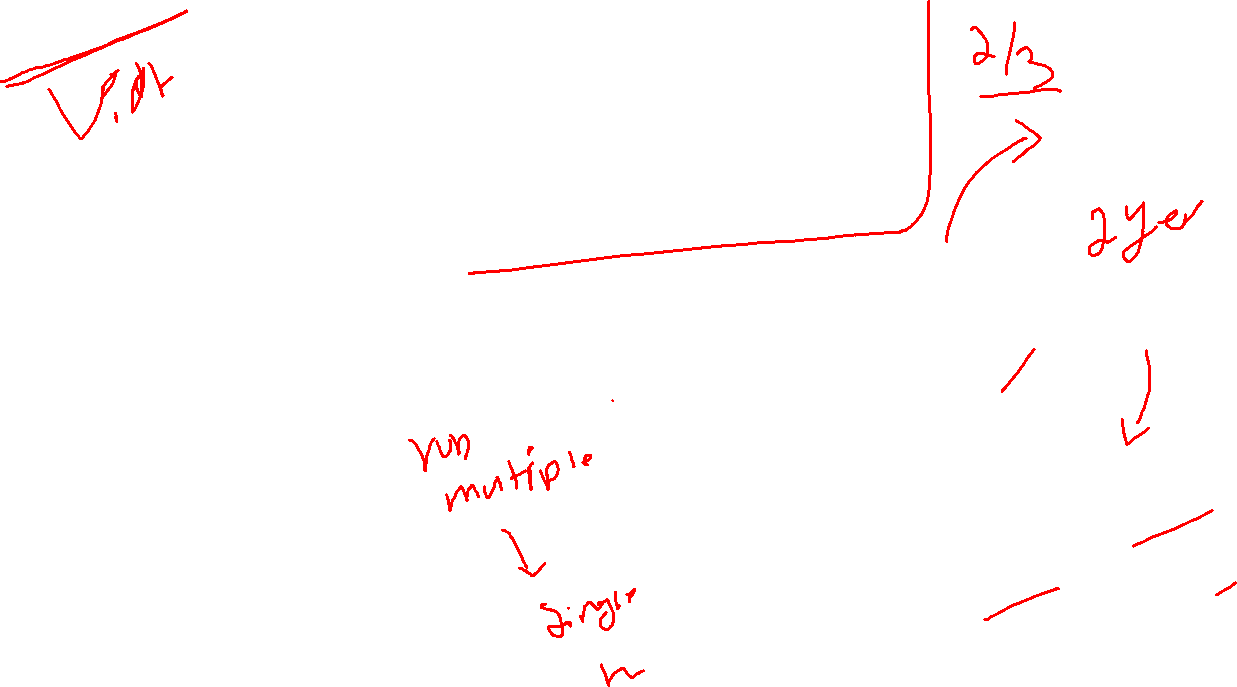 2/3
2yer
run
multiple
single
n